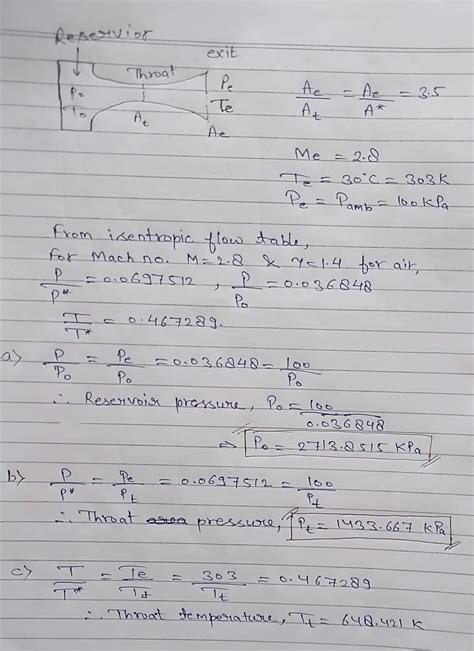 Reservior
exit
Throat
Po
To
At
Pe
Te
Ae
Ae/At = Ae/A* = 3.5
Me = 2.8
Te = 30°C = 303K
Pe = Pamb = 100KPa
From isentropic flow table,
For Mach no. M=2.8 & γ=1.4 for air,
P/P* = 0.0697512 , P/Po = 0.036848
T/T* = 0.467289.
a) P/Po = Pe/Po = 0.036848 = 100/Po
∴ Reservoir pressure, Po = 100/0.036848
⇒ Po = 2713.8515 KPa
b) P/P* = Pe/Pt = 0.0697512 = 100/Pt
∴ Throat area pressure, Pt = 1433.667 KPa
c) T/T* = Te/Tt = 303/Tt = 0.467289
∴ Throat temperature, Tt = 648.421K